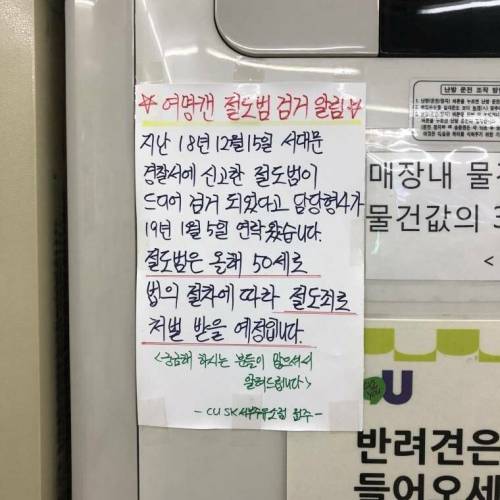 ☆ 여명캔 절도범 검거 알림 ☆
지난 18년 12월 15일 서대문
경찰서에 신고한 절도범이
드디어 검거 되었다고 담당형사가
19년 1월 5일 연락왔습니다.
절도범은 올해 50세로
법의 절차에 따라 절도죄로
처벌 받을 예정입니다.
<궁금해 하시는 분들이 많으셔서
알려드립니다>
- CU SK 점주 -
난방 운전 조작 방법
매장내 물건
물건값의 3
<
U
반려견은
들어오세